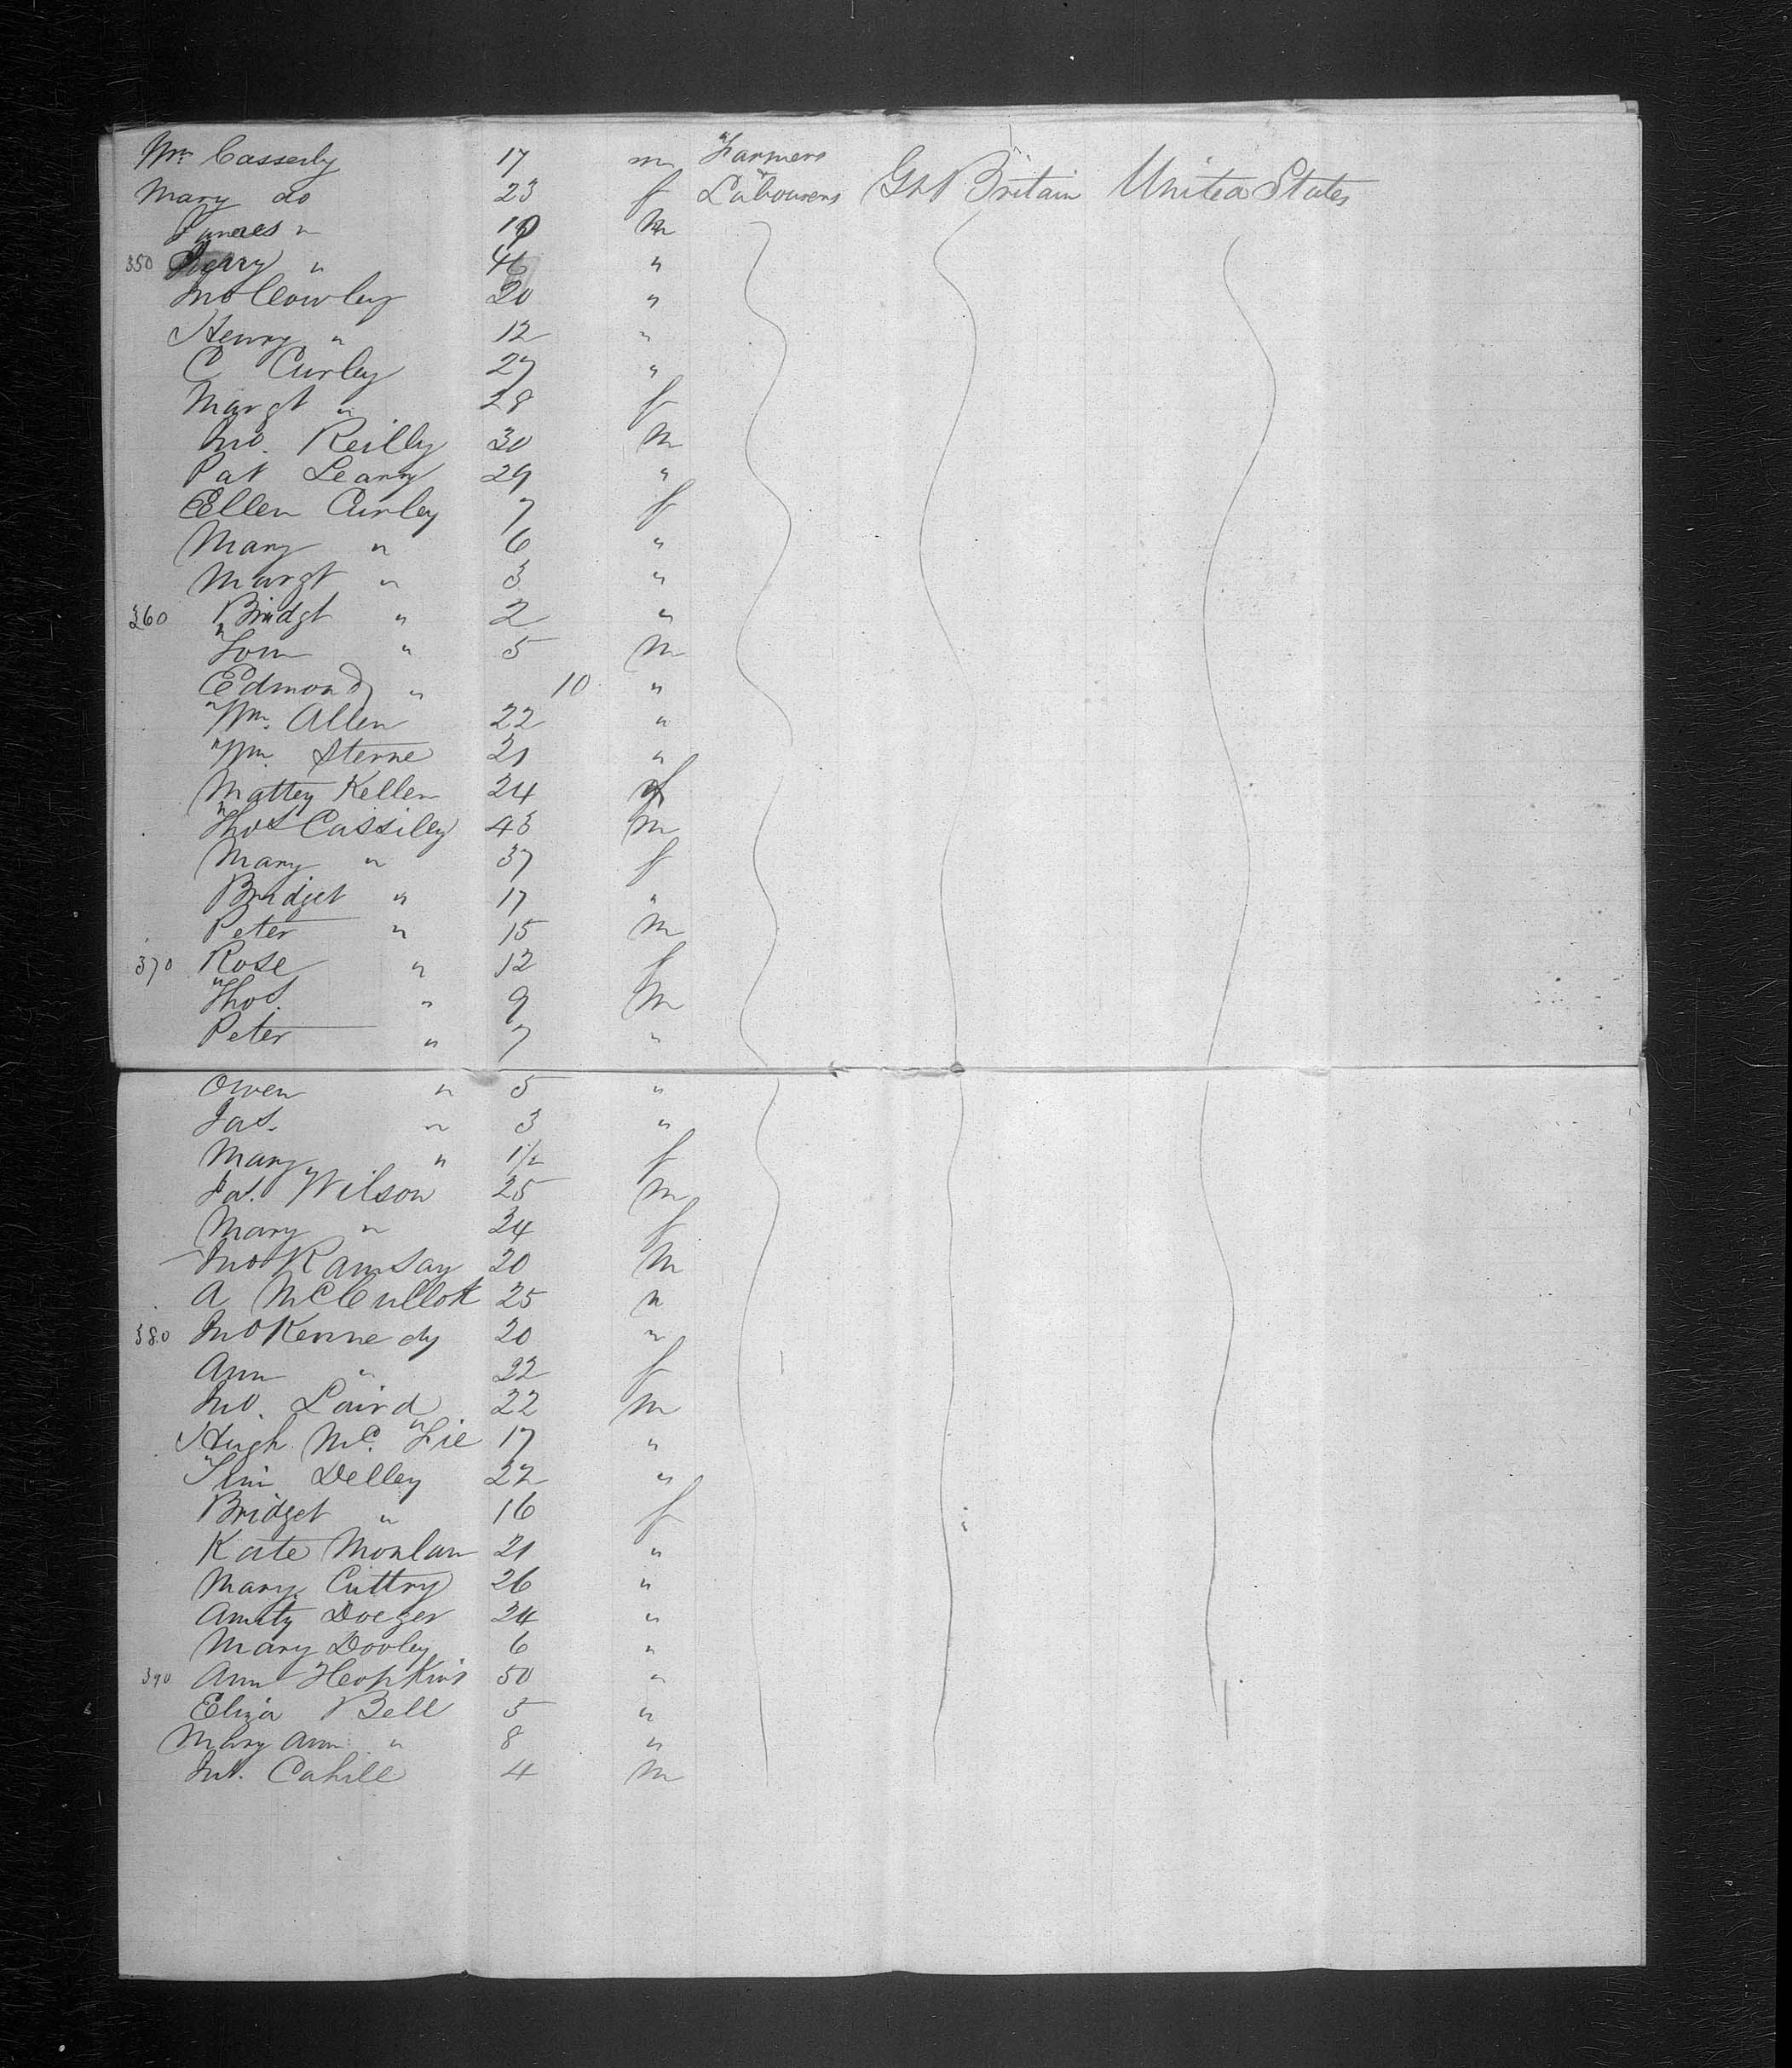 Wm Casserly 17 m Farmers
Mary do 23 f Labourers Gt Britain United States
" m
350 " 46 "
Jno Cowley 20 "
Henry " 12 "
C Curley 27 "
Margt " 28 f
Jno. Reilly 30 m
Pat Leary 29 "
Ellen Curley 7 f
Mary " 6 "
Margt " 3 "
360 Bridgt " 2 "
Tom " 5 m
Edmond " 10 "
Wm. Allen 22 "
Wm. Sterne 21 "
Mattey Keller 24 f
Thos Cassiley 43 m
Mary " 37 f
Bridget " 17 "
Peter " 15 m
370 Rose " 12 f
Thos. " 9 m
Peter " 7 "
Owen " 5 "
Jas. " 3 "
Mary " 1½ f
Ja. Wilson 25 m
Mary " 24 f
Jno Ramsay 20 m
A McCullok 25 "
380 Jno Kennedy 20 "
Ann " 22 f
Jno. Laird 22 m
Hugh Mc. 17 "
Tim Delley 22 "
Bridget " 16 f
Kate 21 "
Mary Cuttry 26 "
24 "
Mary Dooley 6 "
390 Ann Hopkins 50 "
Eliza Bell 5 "
Mary Ann " 8 "
Cahill 4 m